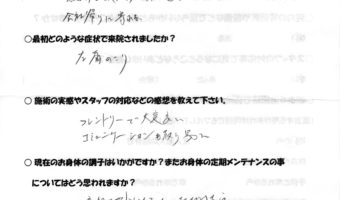 会社帰りに寄れる
○最初どのような症状で来院されましたか？
左肩のこり
○施術の実感やスタッフの対応などの感想を教えて下さい。
フレンドリーで大変よい
コミュニケーションも取り易い
○現在のお身体の調子はいかがですか？またお身体の定期メンテナンスの事
についてはどう思われますか？